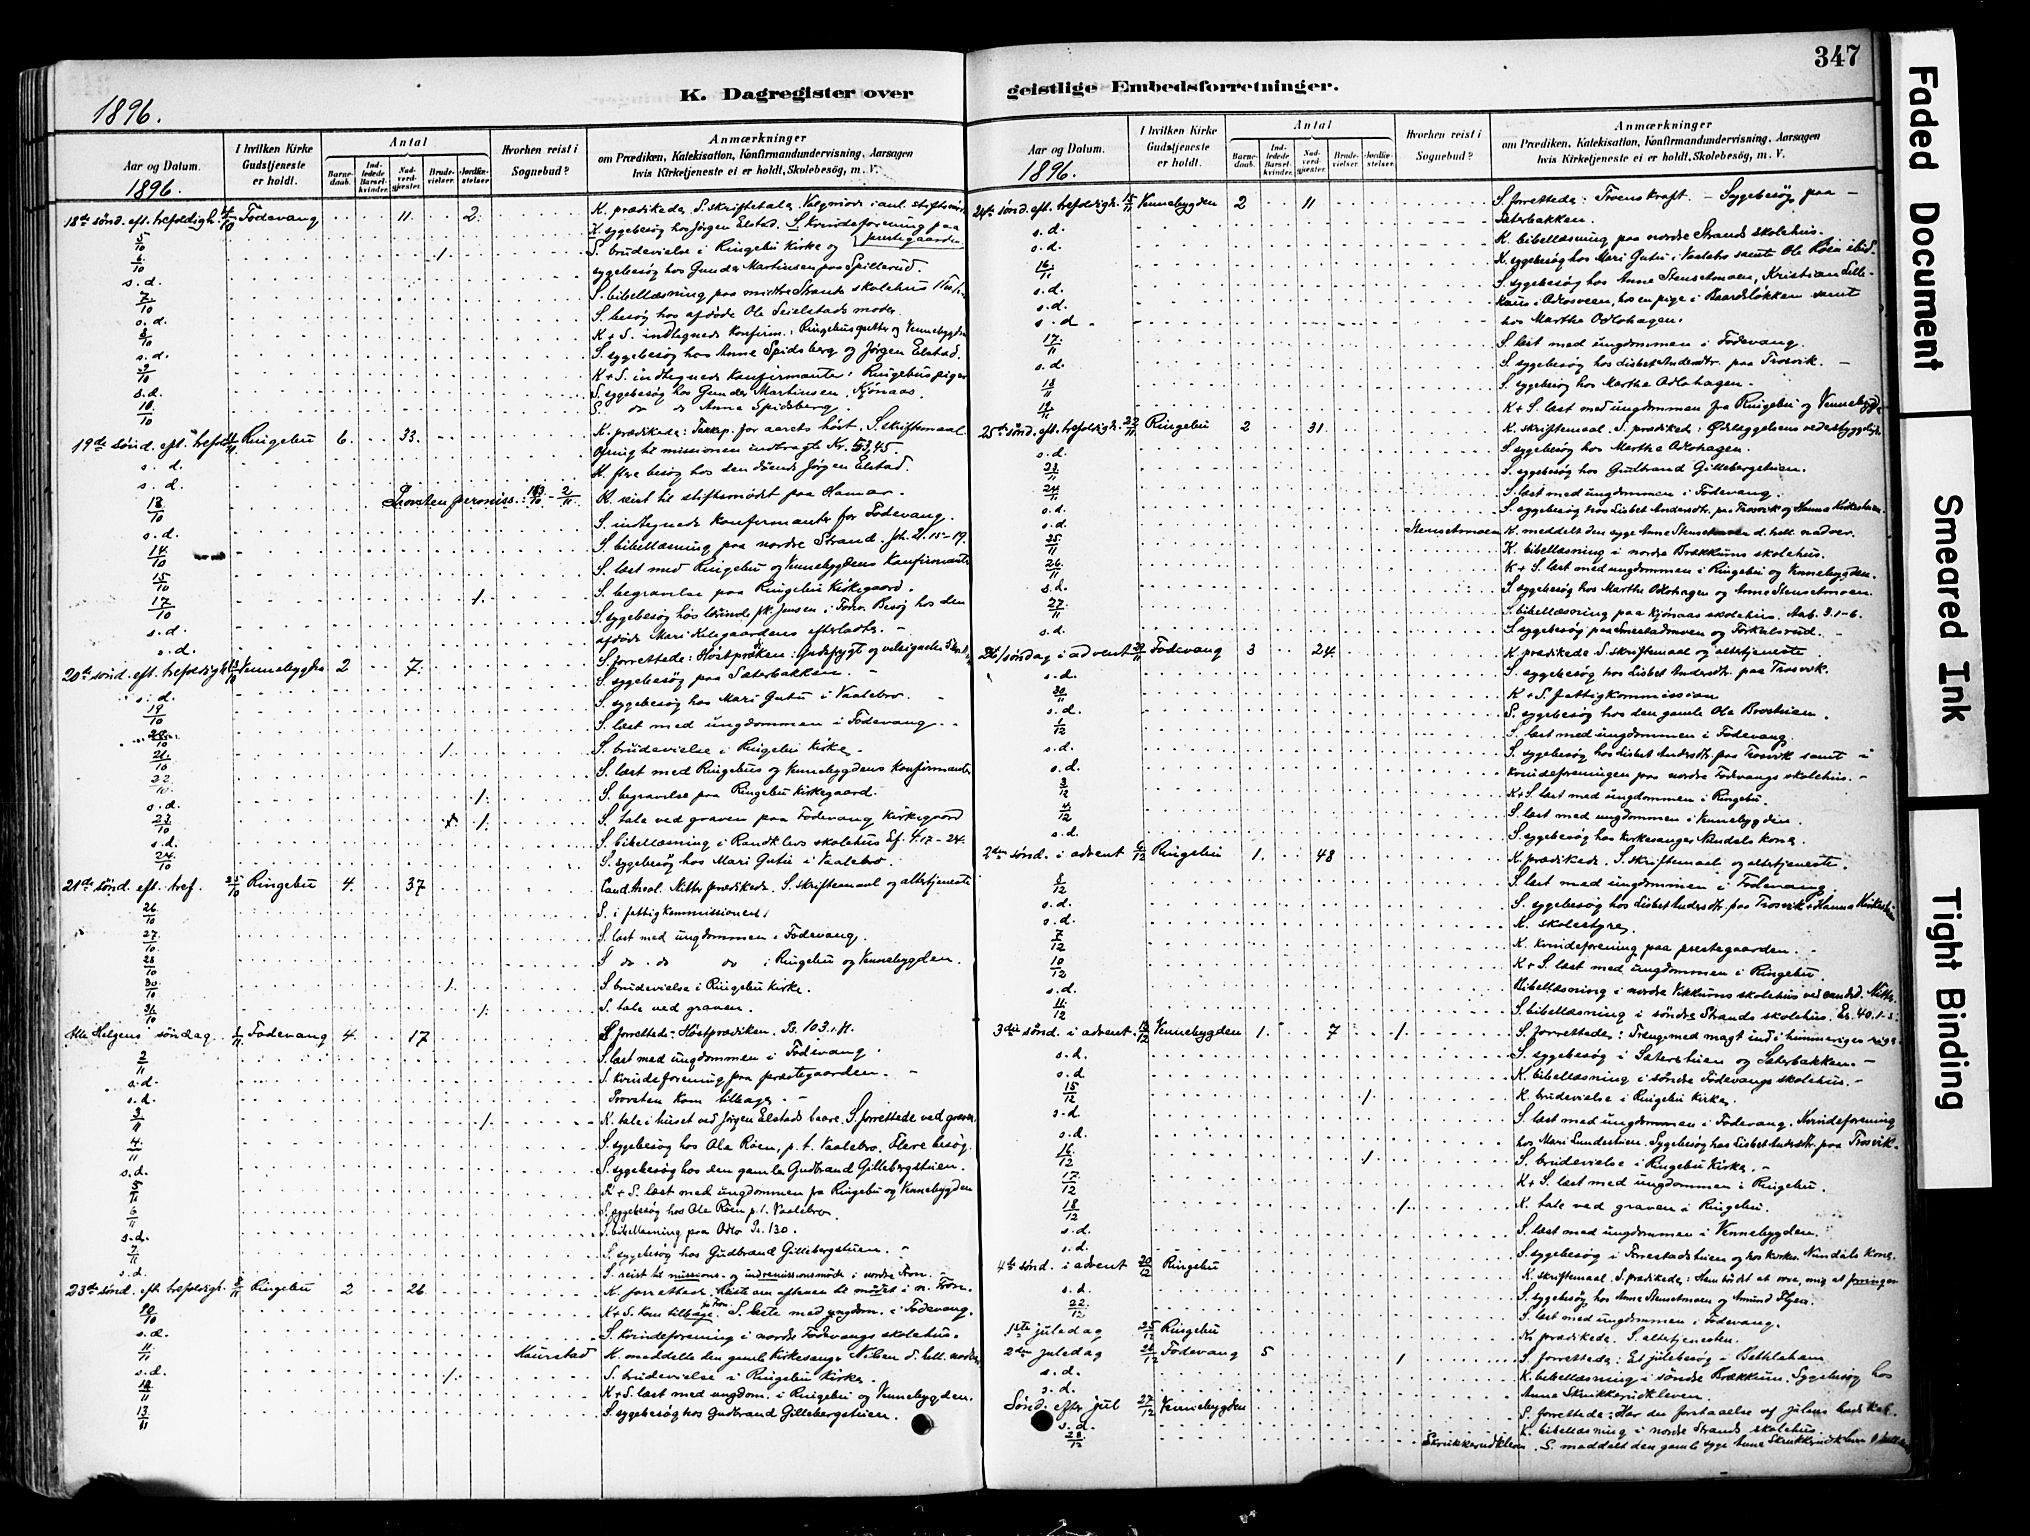 347
1896.
K. Dagregister over
geistlige Embedsforretninger.
Aar og Datum.
1896.
I hvilken Kirke Gudstjeneste er holdt.
Antal
Barnedaab.
Indledede Barselkvinder.
Nadverdgjester.
Brudevielser.
Jordfæstelser.
Hvorhen reist i Sognebud?
Anmærkninger
om Prædiken, Katekisation, Konfirmandundervisning, Aarsagen
hvis Kirketjeneste ei er holdt, Skolebesøg, m. V.
18de sønd. eft. trefoldigh. 4/10 Fodevang 11. 2. K. prædikede, S. skriftetale.
K. sygebesøg hos Jørgen Elstad. S. kvindeforening paa prestegaarden
5/10 1. S. brudevielse i Ringebu Kirke og
6/10 sygebesøg hos Gunder Martinsen paa Spillerud.
s. d. S. bibellæsning paa midtre Strands skolehus
7/10 S. besøg hos afdøde Ole Seielstads moder.
s. d. K + S. indtegnede Konfirm.: Ringebus gutter og Vennebygden
8/10 S. sygebesøg hos Anne Spidsberg og Jørgen Elstad.
s. d. K + S. indtegnede Konfirmanter: Ringebus piger
9/10 S. sygebesøg hos Gunder Martinsen, Kjønaas.
s. d. S. do do Anne Spidsberg.
10/10
19de sønd. eft. trefold. Ringebu 6. 33. K. prædikede: Takkep. for aarets høst. S. skriftemaal
s. d. Ofring til missionen indbragte Kr. 53,45.
s. d. K. flere besøg hos den døende Jørgen Elstad.
13/10 Provsten permiss: 13/10 - 2/11. K. reist til stiftsmødet paa Hamar.
S. indtegnede Konfirmanter for Fodevang.
s. d. S. bibellæsning paa nordre Strand. Joh. 21. 15-19.
14/10 S. læst med Ringebu og Vennebygdens Konfirmanter
15/10 1. S. begravelse paa Ringebu Kirkegaard.
17/10 S. sygebesøg hos
s. d. afdøde Mari Kilegaardens efterladte.
s. d.
20de sønd. eft. trefoldigh. 18/10 Vennebygden 2 7. S. forrettede: Høstprædiken:
s. d. S. sygebesøg paa Sæterbakken.
19/10 S. sygebesøg hos Mari Gutu i Vaalebro.
20/10 S. læst med ungdommen i Fodevang.
21/10 1. S. brudevielse i Ringebu Kirke.
22/10 S. læst med Ringebus og Vennebygdens Konfirmanter
s. d. 1. S. begravelse paa Ringebu Kirkegaard.
23/10 1. S. tale ved graven paa Fodevang Kirkegaard
s. d. S. bibellæsning i Randklevs skolehus Ef. 4. 17-24.
24/10 S. sygebesøg hos Mari Gutu i Vaalebro.
21de sønd. eft. tref. 25/10 Ringebu 4. 37 Cand. theol. Nitter prædikede. S. skriftemaal og altertjeneste
26/10 S. i fattigkommissionen.
27/10 S. læst med ungdommen i Fodevang.
28/10 S do do do i Ringebu og Vennebygden.
30/10 1. S. brudevielse i Ringebu Kirke.
31/10 1. S. tale ved graven.
Alle Helgens søndag 1/11 Fodevang 4. 17 S. forrettede: Høstprædiken. Ps. 103.
2/11 S. læst med ungdommen i Fodevang.
s. d. S. kvindeforening paa præstegaarden.
s. d. Provsten kom tilbage.
3/11 1. K. tale i huset ved Jørgen Elstads baare. S. forrettede ved graven
4/11 S. sygebesøg hos Ole Røen, p. t. Vaalebro. Flere besøg.
s. d. S. sygebesøg hos den gamle Gudbrand Gillebergstuen.
5/11 K + S. læst med ungdommen fra Ringebu og Vennebygden
6/11 S. sygebesøg hos Ole Røen p. t. Vaalebro.
s. d. S. bibellæsning paa Odlo Ps. 130.
7/11 S. sygebesøg hos Gudbrand Gillebergstuen.
s. d. S. reist til missions- og indremissionsmøde i nordre Fron.
23de sønd. eft. trefoldigh. 8/11 Ringebu 2 26 K. forrettede. Reiste om aftenen til mødet i n. Fron.
10/11 K + S. kom tilbage fra Fron. S. læste med yngdom. i Fodevang.
s. d. S. Kvindeforening i nordre Fodevangs skolehus.
11/11 Maurstad K. meddelte den gamle Kirkesanger Nilsen d. hell. nadver
s. d. 1. S. brudevielse i Ringebu Kirke.
12/11 K + S. læst med ungdom. i Ringebu og Vennebygden.
13/11 S. sygebesøg hos Gudbrand Gillebergstuen.
Aar og Datum.
1896.
I hvilken Kirke Gudstjeneste er holdt.
Antal
Barnedaab.
Indledede Barselkvinder.
Nadverdgjester.
Brudevielser.
Jordfæstelser.
Hvorhen reist i Sognebud?
Anmærkninger
om Prædiken, Katekisation, Konfirmandundervisning, Aarsagen
hvis Kirketjeneste ei er holdt, Skolebesøg, m. V.
24de sønd. eft. trefoldigh. 15/11 Vennebygden 2 11 S. forrettede: Troens kraft. - Sygebesøg paa
s. d. Sæterbakken.
s. d. K. bibellæsning paa nordre Strands skolehus.
16/11 K. sygebesøg hos Mari Gutu i Vaalebro samt Ole Røen ibid.
s. d. S. sygebesøg hos Anne Stensetmoen, Kristian
s. d. hos en pige i Baardsløkken samt
s. d. hos Marthe Odlohagen.
17/11 S. læst med ungdommen i Fodevang.
s. d. S. sygebesøg hos Lisbet Andersdtr. paa Trosvik.
18/11 S. sygebesøg hos Marthe Odlohagen.
19/11 K + S. læst med ungdommen fra Ringebu og Vennebygden
25de sønd. eft. trefoldigh. 22/11 Ringebu 2 31. K. skriftemaal. S. prædikede: Ødelæggelsens vederstyggelighed
s. d. S. sygebesøg hos Marthe Odlohagen.
23/11 S. sygebesøg hos Gudbrand Gillebergstuen.
24/11 S. læst med ungdommen i Fodevang.
s. d. S. sygebesøg hos Lisbet Andersdtr. paa Trosvik og Hanna Kirkestuen
s. d. Stensetmoen K. meddelt den syge Anne Stensetmoen d. hell. nadver.
25/11 K. bibellæsning i nordre Brækkums skolehus.
26/11 K + S. læst med ungdommen i Ringebu og Vennebygden.
s. d. S. sygebesøg hos Marthe Odlohagen og Anne Stensetmoen.
27/11 S. bibellæsning paa Kjønaas skolehus. Aab. 3. 1-6.
s. d. S. sygebesøg paa
1ste søndag i advent 29/11 Fodevang 3 24. K. prædikede S. skriftemaal og altertjeneste.
s. d. S. sygebesøg hos Lisbet Andersdtr. paa Trosvik.
30/11 K + S. fattigkommission
s. d. S. sygebesøg hos den gamle Ole Brostuen.
1/12 S. læst med ungdommen i Fodevang.
s. d. S. sygebesøg hos Lisbet Andersdtr. paa Trosvik samt i
s. d. kvindeforeningen paa nordre Fodevangs skolehus.
3/12 K + S. læst med ungdommen i Ringebu.
4/12 S. læst med ungdommen i Vennebygden.
s. d. S. sygebesøg hos Kirkesanger Nindals kone.
2den sønd. i advent 6/12 Ringebu 1. 48 K. prædikede. S. skriftemaal og altertjeneste.
8/12 S. læst med ungdommen i Fodevang.
s. d. S. sygebesøg hos Lisbet Andersdtr. paa Trosvik + Hanna Kirkestuen
s. d. K. skolestyre.
7/12 K. kvindeforening paa prestegaarden.
10/12 K + S. læst med ungdommen i Ringebu.
s. d. Bibellæsning i nordre Vekkums skolehus ved cand. Nitter.
11/12 S. bibellæsning i søndre Strands skolehus. Es. 40. 1-5
3die sønd. i advent. 13/12 Vennebygden 1. 7 1. S. forrettede: Trænge med magt ind i himmeriges rige
s. d. S. sygebesøg i Sæterstuen og Sæterbakken.
s. d. K. bibellæsning i søndre Fodevangs skolehus.
15/12 1. K. brudevielse i Ringebu Kirke.
s. d. S. læst med ungdommen i Fodevang. Kvindeforening
s. d. hos Mari Lundestuen. Sygebesøg hos Lisbet Andersdtr. paa Trosvik.
16/12 1. S. brudevielse i Ringebu Kirke.
17/12 K + S. læst med ungdommen i Ringebu.
18/12 1. K. tale ved graven i Ringebu.
s. d. S. læst med ungdommen i Vennebygden.
s. d. S. sygebesøg i Forrestadstuen og hos Kirkes. Nindals kone.
4de sønd. i advent 20/12 Ringebu K. skriftemaal. S. prædikede: Ham bør det at voxe, mig at forringes
s. d. S. sygebesøg hos Anne Stensetmoen og Amund Flyen.
22/12 S. læst med ungdommen i Fodevang.
1ste juledag 25/12 Ringebu K. prædikede. S. altertjenesten.
2den juledag 26/12 Fodevang 5 1 S. forrettede: Et julebesøg i Bethlehem
s. d. K. bibellæsning i søndre Brækkum. Sygebesøg hos
s. d. Anne Skrukkerudkleven.
Sønd. efter jul 27/12 Vennebygden S. forrettede: Har du forstaaelse af julens budskab.
s. d. K. bibellæsning i nordre Strands skolehus.
28/12 Skrukkerudkleven S. meddelt den gamle syge Anne Skrukkerudkleven
Faded Document
Smeared Ink
Tight Binding